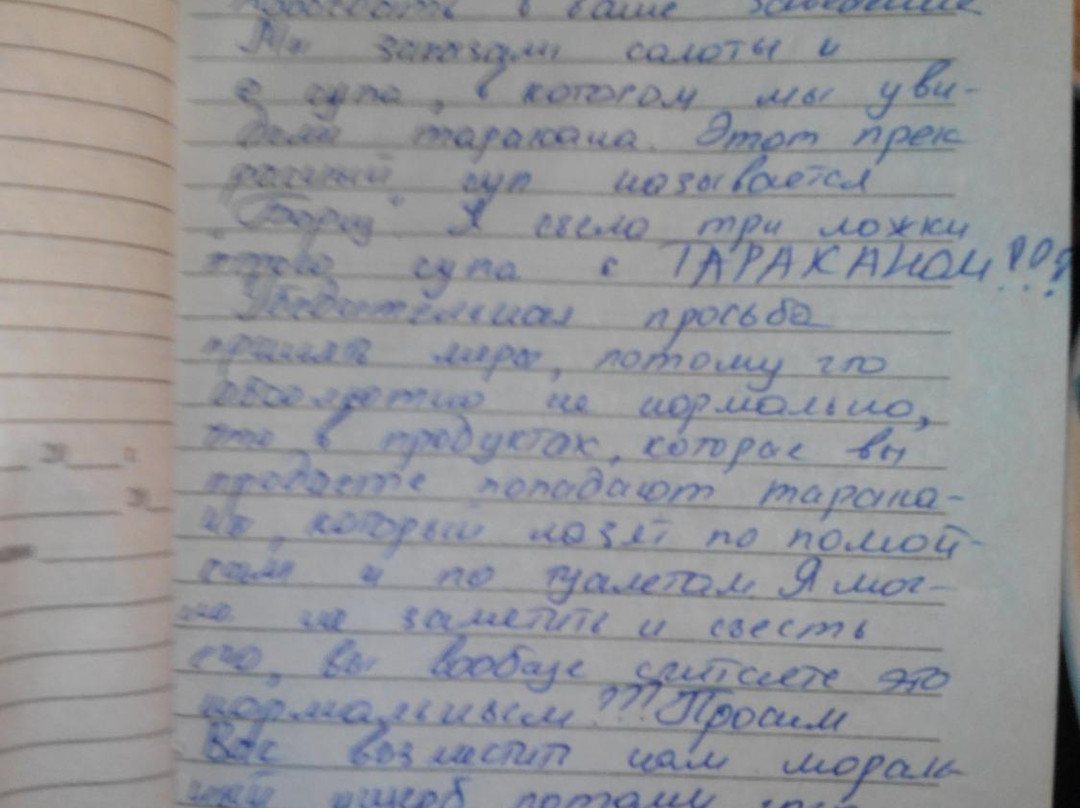 в ваше заведение
Мы заказали салоты и
2 супа, в котором мы уви-
дели таракана. Этот прек
расный суп называется
"Борщ" Я съела три ложки
этого супа с ТАРАКАНОМ!!!
Убедительная просьба
принять меры, потому что
абсолютно не нормально,
что в продуктах, которые вы
продаете попадают тарака-
ны, который лазят по помой-
кам и по туалетам Я мог-
ла не заметить и съесть
его, вы вообще считаете это
нормальным??? Просим
Вас возместить нам мораль
ный ущерб потому что